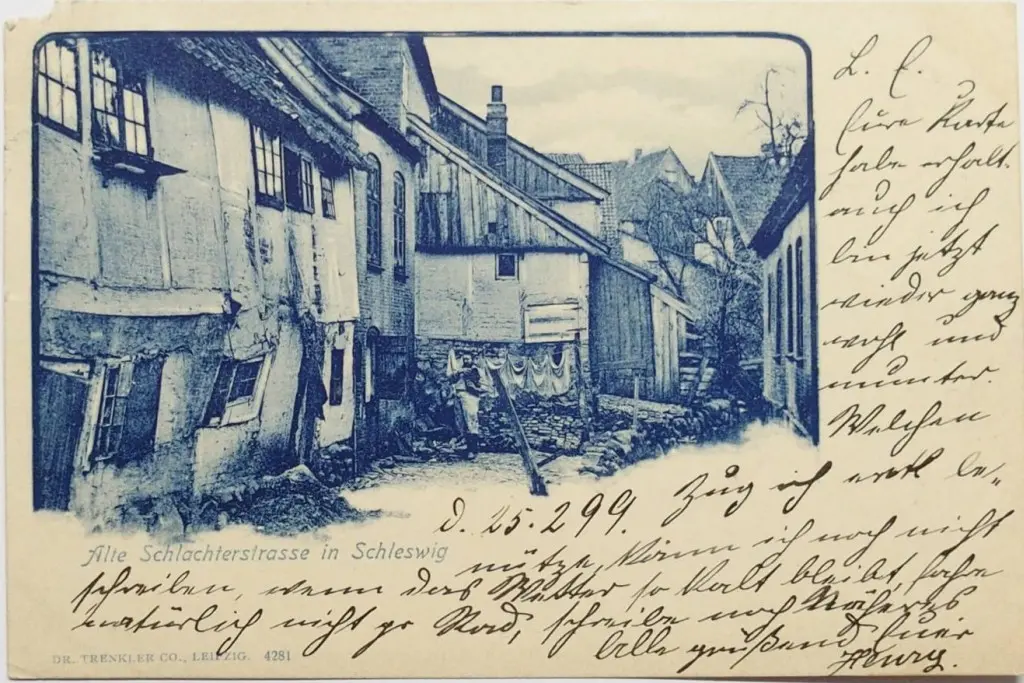 L. E.
Eure Karte
habe erhalt.
auch ich
bin jetzt
wieder ganz
wohl und
munter.
Welchen
d. 25. 2 99.
Zug ich evtl be-
nütze, kann ich noch nicht
Alte Schlachterstrasse in Schleswig
schreiben, wenn das Wetter so kalt bleibt, fahre
natürlich nicht pr Rad, schreibe noch Näheres
Alle grüßend Euer
Henry.
DR. TRENKLER CO., LEIPZIG. 4281